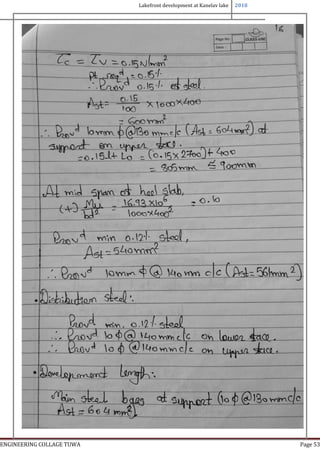 Lakefront development at Kanelav lake 2018
16
Page No.
Date
τc = τv = 0.15 N/mm²
Pt reqd = 0.15%
∴ Provd 0.15% of steel.
Ast = 0.15/100 × 1000×400
= 600mm²
∴ Provd 10mm ϕ@130mmc/c (Ast = 604mm²) at
support on upper face.
= 0.15l + Lo = (0.15×2700) + 400
= 805mm ≤ 900mm
At mid span of heel slab,
(+) Mu/bd² = 16.93×10⁶/1000×400² = 0.10
Provd min 0.12% steel,
Ast = 540mm²
∴ Provd 10mm ϕ @ 140mm c/c (Ast = 561mm²)
• Distribution steel:
Provd min. 0.12% steel
∴ Provd 10 ϕ @ 140mmc/c on lower face.
∴ Provd 10 ϕ @ 140mmc/c on upper face.
• Development length:
Main steel bars at support (10 ϕ @ 130mmc/c
Ast = 604mm²)
ENGINEERING COLLAGE TUWA Page 53